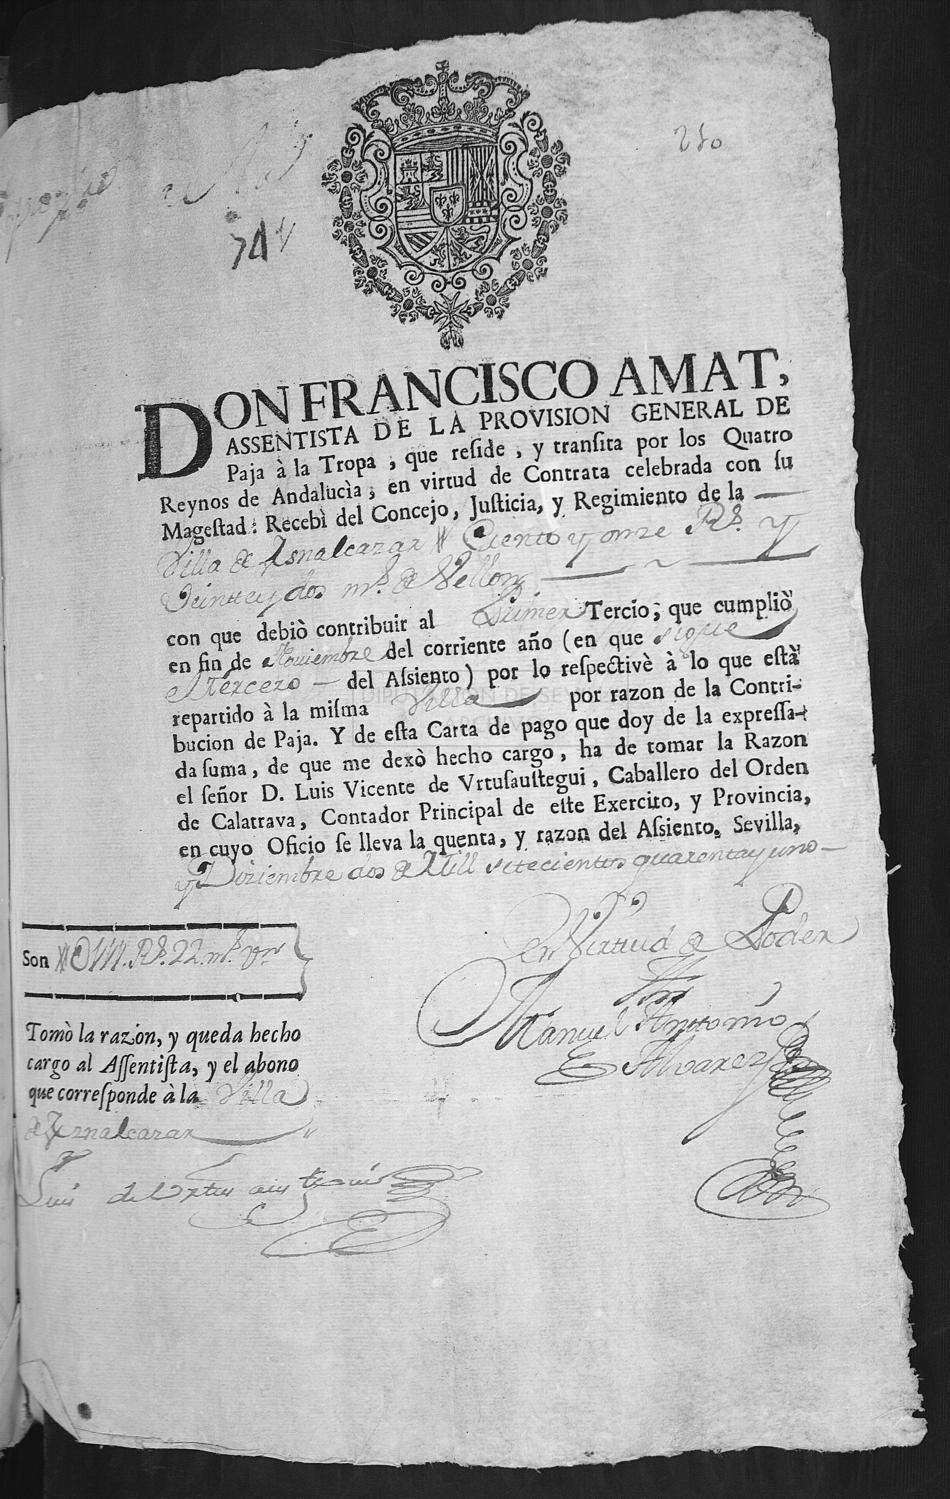 210
741
DON FRANCISCO AMAT,
ASSENTISTA DE LA PROVISION GENERAL DE
Paja à la Tropa, que reside, y transita por los Quatro
Reynos de Andalucìa; en virtud de Contrata celebrada con su
Magestad: Recebì del Concejo, Justicia, y Regimiento de la
Villa de Aznalcazar Ciento y onze Rs. y
Veintte y dos ms. de Vellon
con que debiò contribuir al Primer Tercio; que cumpliò
en fin de Noviembre del corriente año (en que sigue
el tercero del Assiento) por lo respectivè à lo que està
repartido à la misma Villa por razon de la Contri-
bucion de Paja. Y de esta Carta de pago que doy de la expressa-
da suma, de que me dexò hecho cargo, ha de tomar la Razon
el señor D. Luis Vicente de Vrtusaustegui, Caballero del Orden
de Calatrava, Contador Principal de este Exercito, y Provincia,
en cuyo Oficio se lleva la quenta, y razon del Assiento. Sevilla,
y Diziembre dos de Mill settecientos quarenta y uno
en Virtud de Poder
Son 111 Rs. 22 ms. vn
Manuel Antonio
Alvarez
Tomò la razon, y queda hecho
cargo al Assentista, y el abono
que corresponde à la Villa
de Aznalcazar
Luis de Urtusaustegui